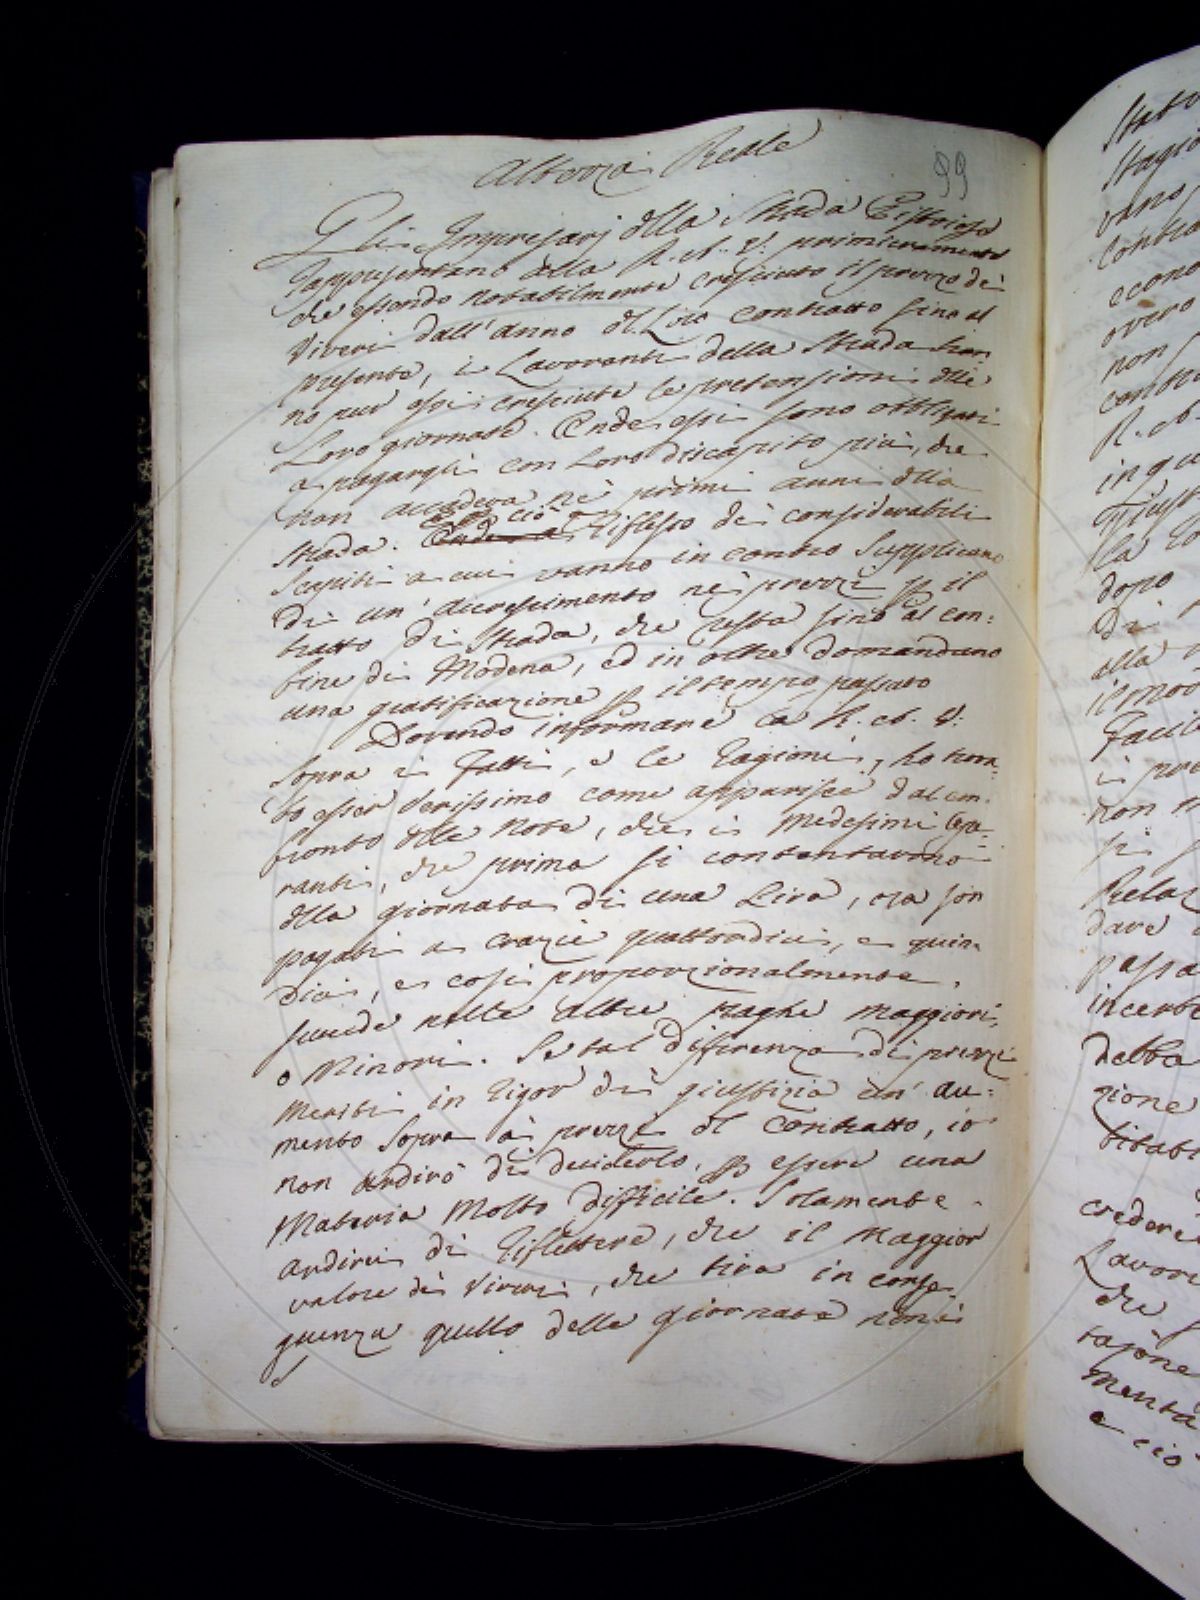 Altezza Reale
99
Gli Impresarj della Strada Pistoiese
rappresentano alla R. A. V. primieramente
che essendo notabilmente cresciuto il prezzo dei
Viveri dall'anno del Loro contratto fino al
presente, i Lavoranti della Strada han
no pur essi cresciute le pretensioni delle
Loro giornate. Onde essi sono obbligati
a pagargli con Loro discapito più, che
non accadeva ne' primi anni della
Strada. ciò riflesso dei considerabili
Scapiti a cui vanno in contro Supplicano
di un' accrescimento nei prezzi p il
tratto di Strada, che resta fino al con:
fine di Modena, ed in oltre domandano
una gratificazione p il tempo passato
Dovendo informare la R. A. V.
sopra i fatti, e le ragioni, ho trova-
to esser verissimo come apparisce dal con-
fronto delle Note, che i medesimi Lavo-
ranti, che prima si contentavano
della giornata di una Lira, ora son
pagati a crazie quattordici, e quin-
dici, e così proporzionalmente
succede nelle altre paghe maggiori,
o Minori. Se tal differenza di prezzi
meriti in rigor di giustizia un' au:
mento sopra ai prezzi del Contratto, io
non ardirò di deciderlo, p essere una
Materia Molto difficile. Solamente
ardirei di riflettere, che il Maggior
valore dei Viveri, che tira in conse-
guenza quello delle giornate non è
Stagio
vano
contra
econo
overo
non
contr
R. A.
in qu
Giust
la
dopo
di
alla
il mod
facil
i
non
si
Relaz
dare
passa
incert
detta
zione
credere
Lavor
che
menta
e ciò